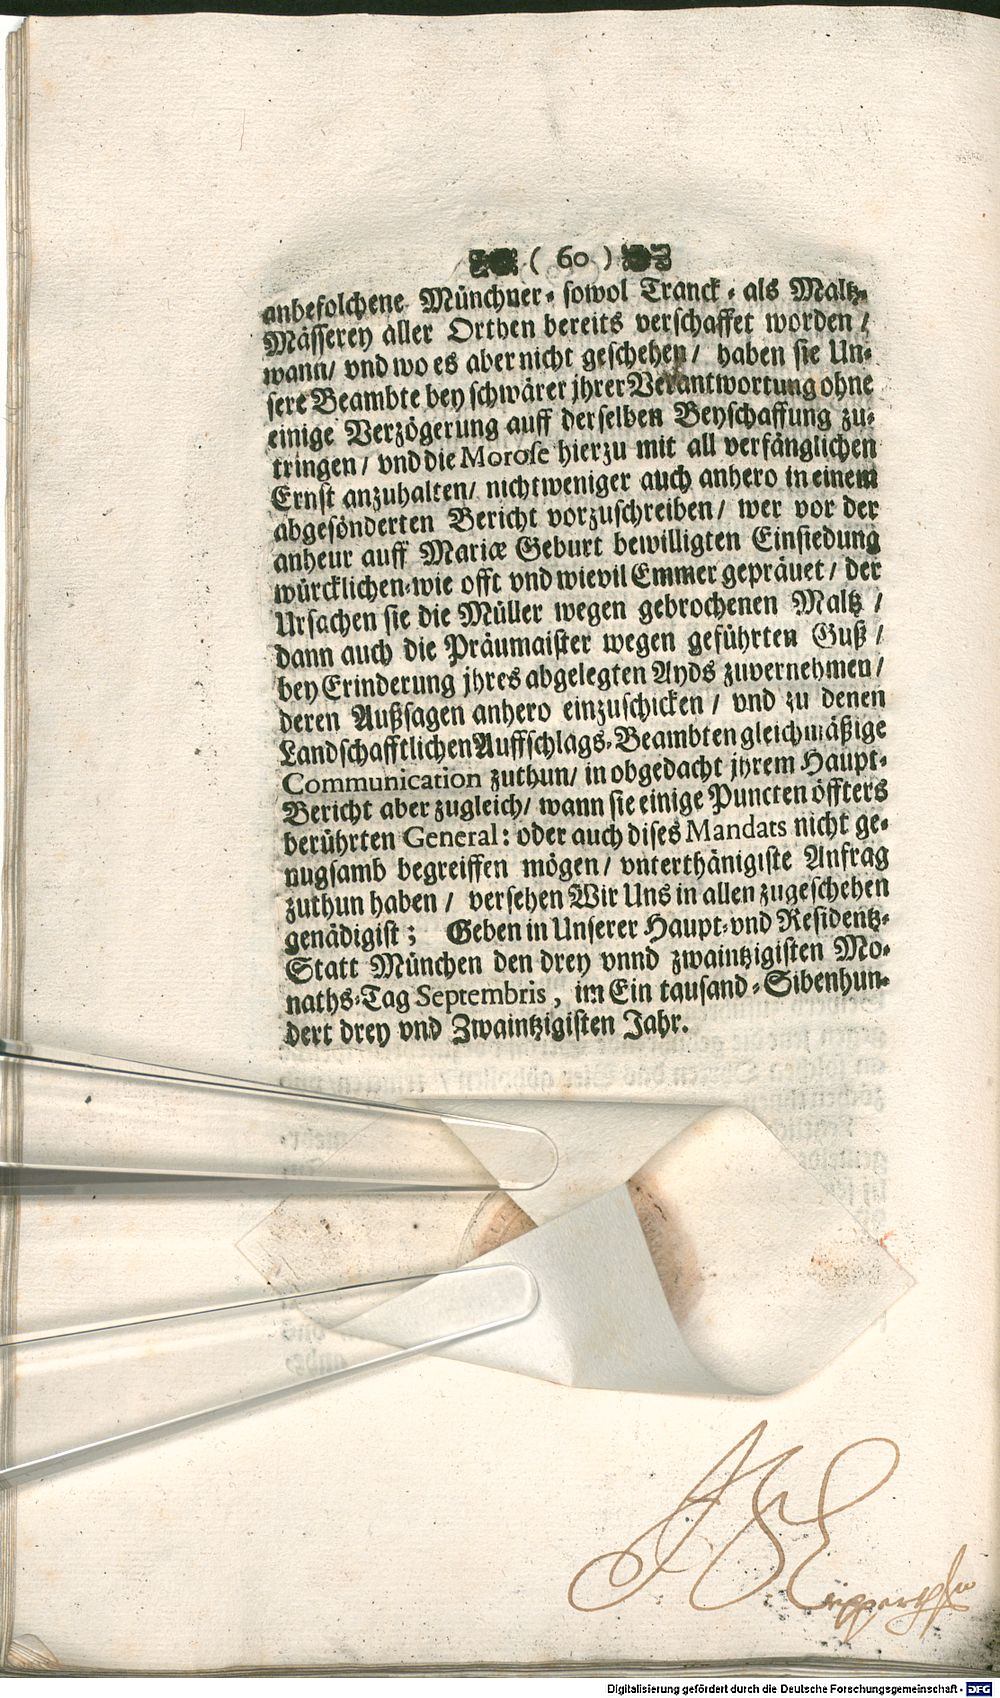 ( 60 )
anbefolchene Münchner- sowol Tranck- als Maltz-
Mässerey aller Orthen bereits verschaffet worden /
wann/ vnd wo es aber nicht geschehen/ haben sie Un-
sere Beambte bey schwärer jhrer Verantwortung ohne
einige Verzögerung auff derselben Beyschaffung zu-
tringen / vnd die Morose hierzu mit all verfänglichen
Ernst anzuhalten/ nichtweniger auch anhero in einem
abgesönderten Bericht vorzuschreiben/ wer vor der
anheur auff Mariæ Geburt bewilligten Einsiedung
würcklichen-wie offt vnd wievil Emmer gepräuet / der
Ursachen sie die Müller wegen gebrochenen Maltz /
dann auch die Präumaister wegen geführten Guß /
bey Erinderung jhres abgelegten Ayds zuvernehmen /
deren Außsagen anhero einzuschicken / vnd zu denen
Landschafftlichen Auffschlags-Beambten gleichmäßige
Communication zuthun/ in obgedacht jhrem Haupt-
Bericht aber zugleich/ wann sie einige Puncten öffters
berührten General: oder auch dises Mandats nicht ge-
nugsamb begreiffen mögen/ vnterthänigiste Anfrag
zuthun haben / versehen Wir Uns in allen zugeschehen
genädigist; Geben in Unserer Haupt-vnd Residentz-
Statt München den drey vnnd zwaintzigisten Mo-
naths-Tag Septembris, im Ein tausand-Sibenhun-
dert drey vnd Zwaintzigisten Jahr.
Digitalisierung gefördert durch die Deutsche Forschungsgemeinschaft - DFG